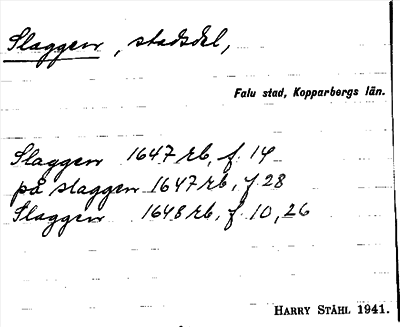 Slaggen, stadsdel,
Falu stad, Kopparbergs län.
Slaggen 1647 rb, f. 14
på slaggen 1647 rb, f 28
Slaggen 1648 rb, f. 10, 26
HARRY STÅHL 1941.